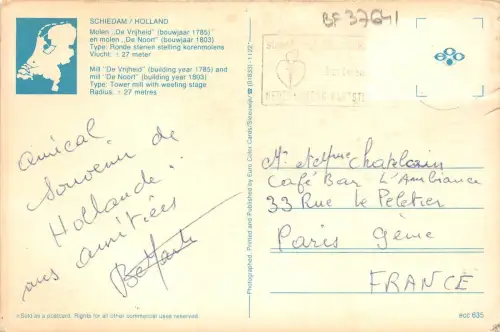 SCHIEDAM / HOLLAND
Molen „De Vrijheid" (bouwjaar 1785)
en molen „De Noort" (bouwjaar 1803)
Type: Ronde stenen stelling korenmolens
Vlucht: ± 27 meter
Mill "De Vrijheid" (building year 1785) and
mill "De Noort" (building year 1803)
Type: Tower mill with weefing stage
Radius: ± 27 metres
BF 37641
amical
souvenir de
Hollande..
mes amitiées
Photographed, Printed and Published by Euro Color Cards/Sleeuwijk/ (01833)-1172*
Mr et Mme Chaplain
Café Bar L'Ambiance
33 Rue Le Peletier
Paris 9ème
FRANCE
Sold as a postcard. Rights for all other commercial uses reserved.
ecc 635